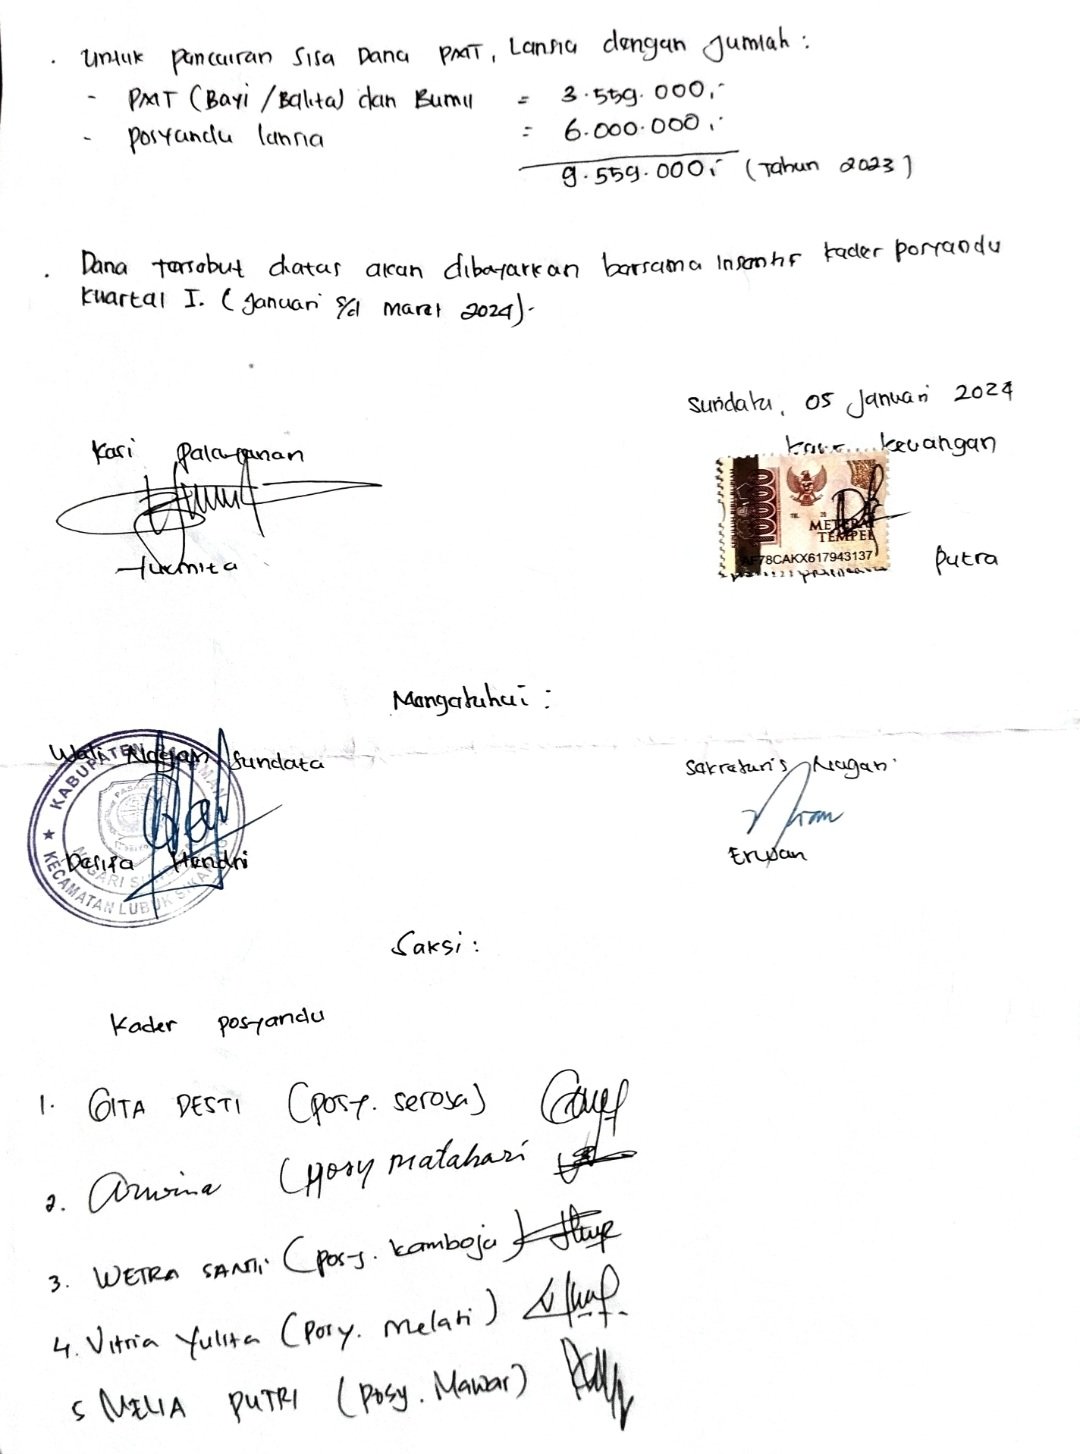 . Untuk pancairan Sisa Dana PMT, Lansia dengan jumlah :
- PMT (Bayi /Balita) dan Bumil = 3.559.000,-
- posyandu lansia = 6.000.000,-
9.559.000,- (Tahun 2023)
. Dana tersebut diatas akan dibayarkan bersama insentif kader posyandu
kuartal I. (Januari s/d Maret 2024).
Sundata, 05 Januari 2024
Kasi Palayanan
Kaur keuangan
10000
METERAI
TEMPEL
78CAKX617943137
Putra
Mangatahui :
Wali Nagari Sundata
Sakretaris Nagari
KABUPATEN
KECAMATAN LUBUK
Erwan
Hendri
Saksi :
Kader posyandu
1. GITA DESTI (posy. serosa)
2. Arwina (posy matahari
3. WETRA SANTI (posy. kamboja)
4. Vitria Yulita (posy. melati)
5 MELIA PUTRI (posy. Mawar)